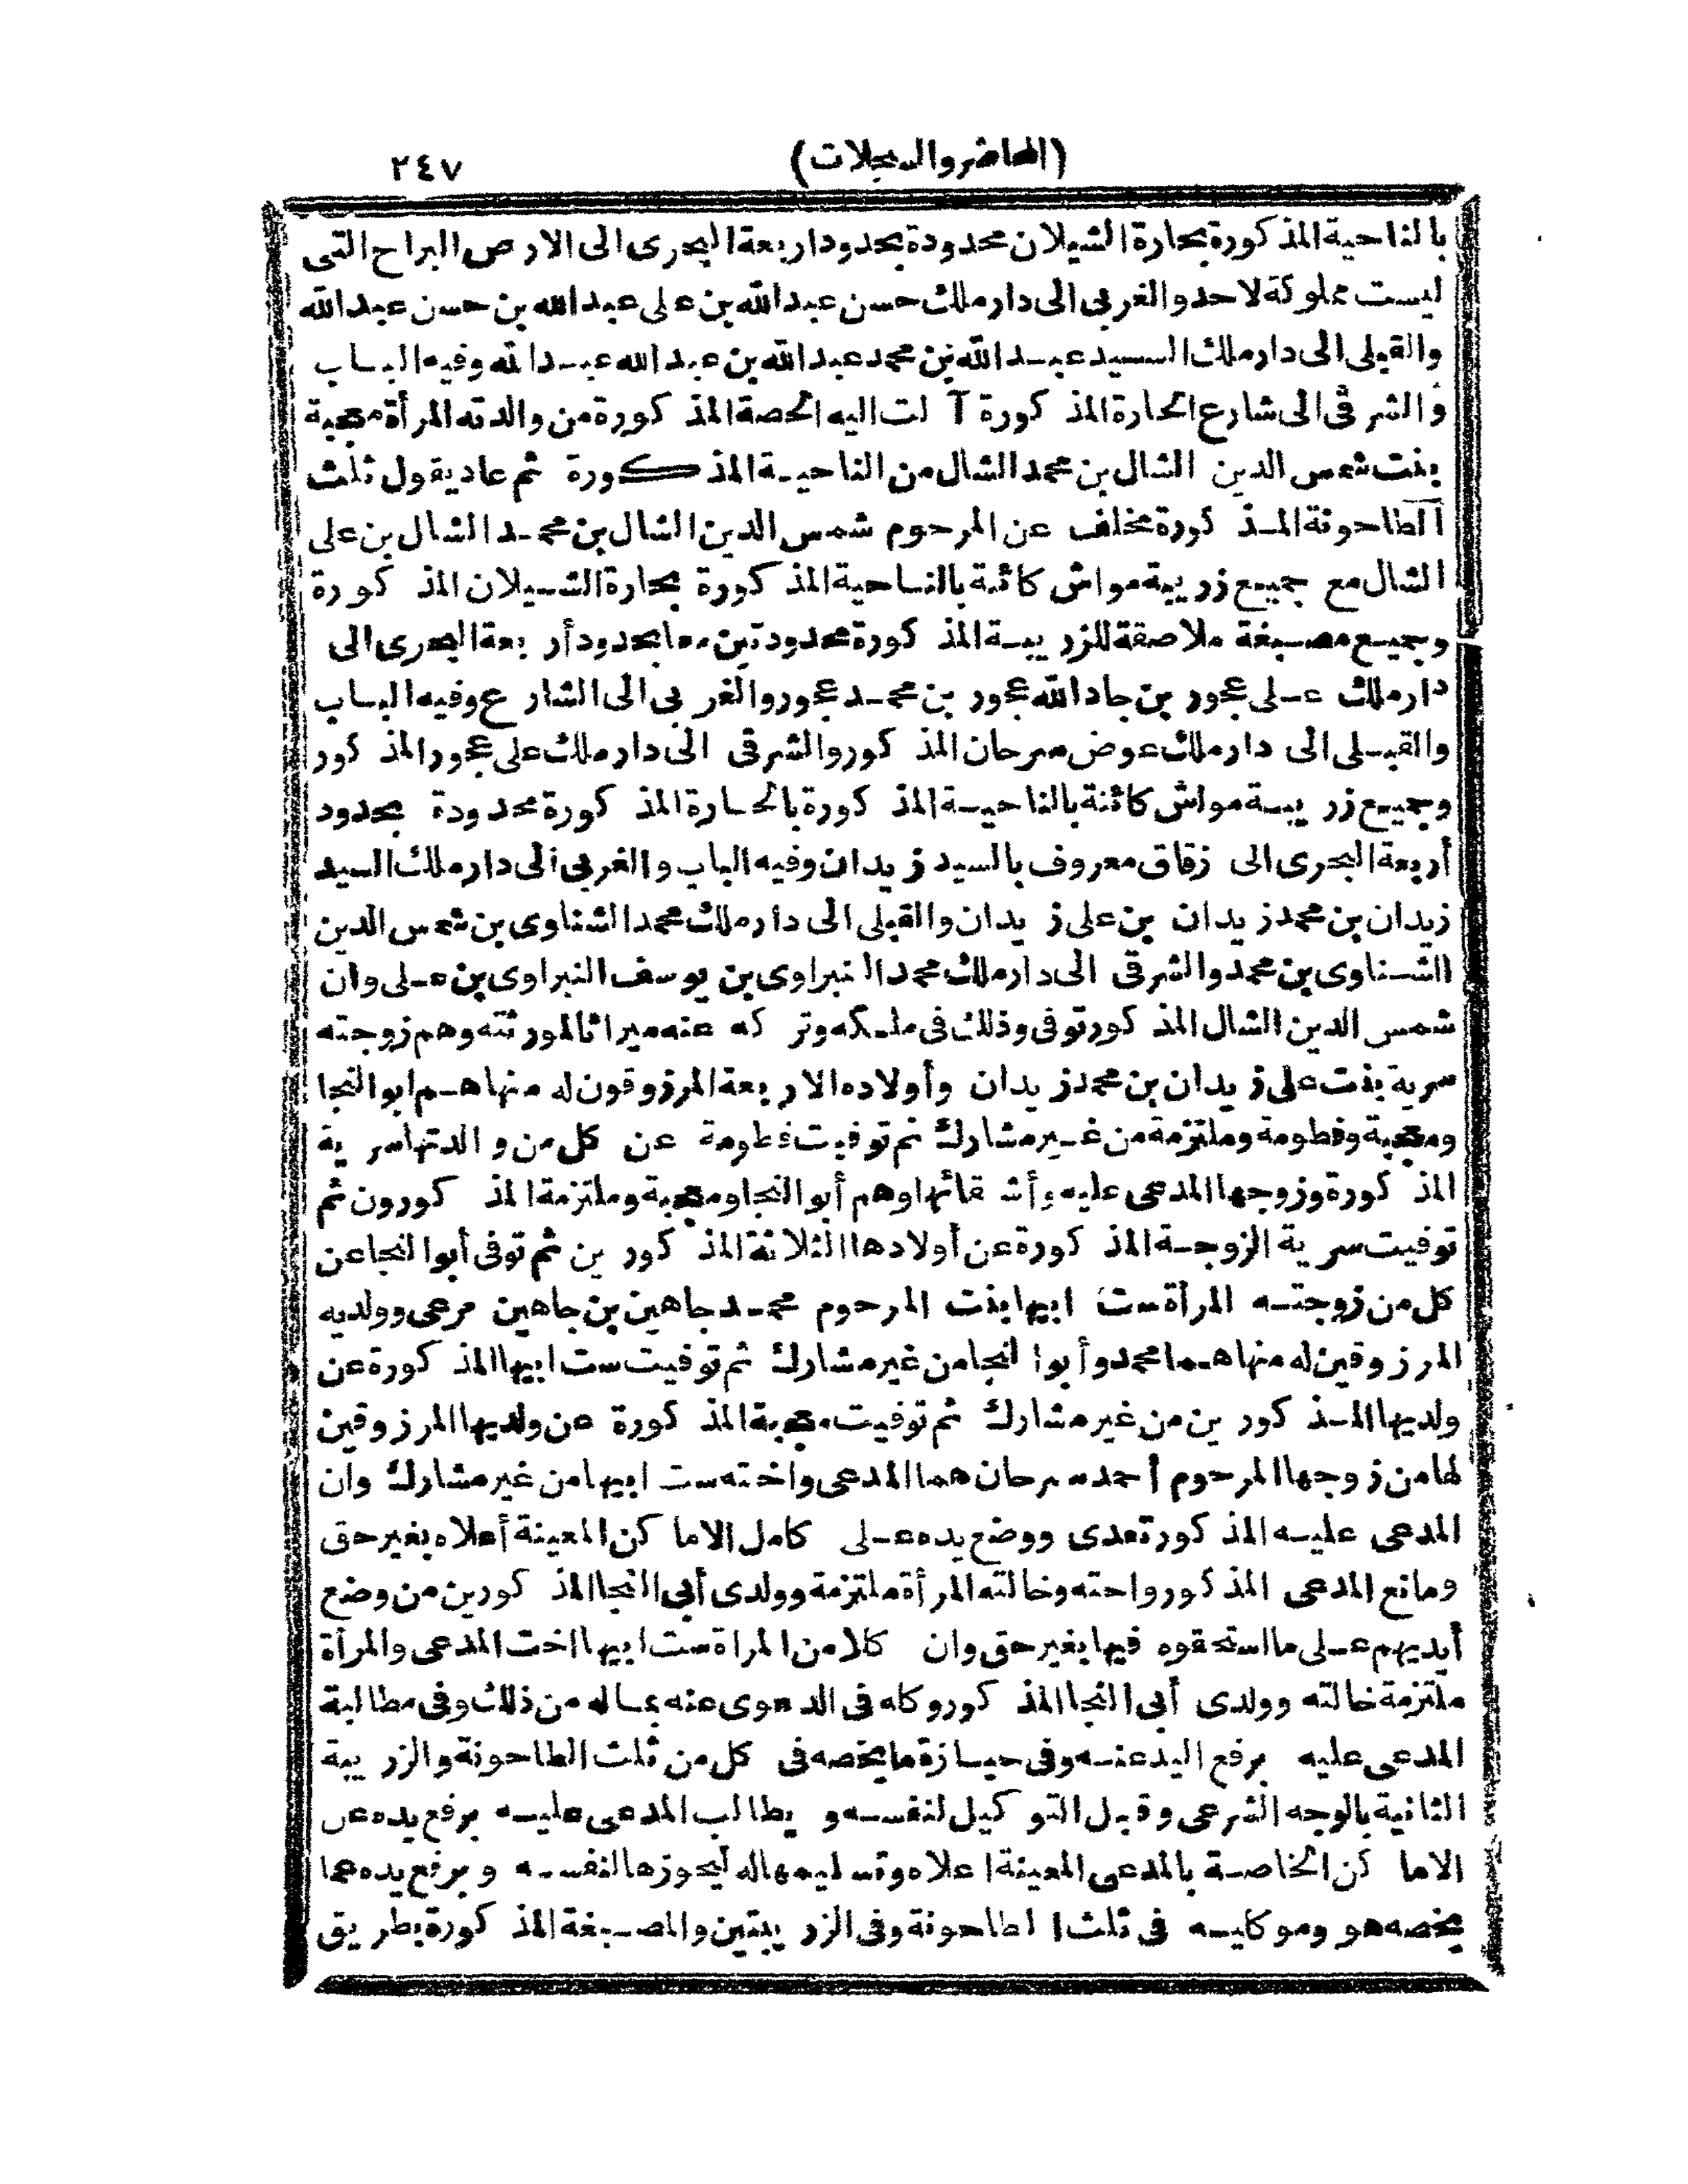 (المحاضر والسجلات) ٢٤٧
بالناحية المذكورة بحارة الشيلان محدودة بحدود اربعة البحرى الى الارض البراح التى
ليست مملوكة لاحد والغربى الى دار ملك حسن عبد الله بن على عبد الله بن حسن عبد الله
والقبلى الى دار ملك السيد عبد الله بن محمد عبد الله بن عبد الله عبد الله وفيه الباب
والشرقى الى شارع الحارة المذكورة آلت اليه الحصة المذكورة من والدته المرأة معجبة
بنت شمس الدين الشال بن محمد الشال من الناحية المذكورة ثم عاد يقول ثلث
الطاحونة المذكورة مخلف عن المرحوم شمس الدين الشال بن محمد الشال بن على
الشال مع جميع زريبة مواش كائنة بالناحية المذكورة بحارة الشيلان المذكورة
وجميع مصبغة ملاصقة للزريبة المذكورة محدودتين معا بحدود أربعة البحرى الى
دار ملك على عجور بن جاد الله عجور بن محمد عجور والغربى الى الشارع وفيه الباب
والقبلى الى دار ملك عوض سرحان المذكور والشرقى الى دار ملك على عجور المذكور
وجميع زريبة مواش كائنة بالناحية المذكورة بالحارة المذكورة محدودة بحدود
أربعة البحرى الى زقاق معروف بالسيد زيدان وفيه الباب والغربى الى دار ملك السيد
زيدان بن محمد زيدان بن على زيدان والقبلى الى دار ملك محمد الشناوى بن شمس الدين
الشناوى بن محمد والشرقى الى دار ملك محمد النبراوى بن يوسف النبراوى بن على وان
شمس الدين الشال المذكور توفى وذلك فى ملكه وتركه عنه ميراثا لمورثته وهم زوجته
سرية بنت على زيدان بن محمد زيدان وأولاده الاربعة المرزوقون له منها هم ابو النجا
ومعجبة وفطومة وملتزمة من غير مشارك ثم توفيت فطومة عن كل من والدتها سرية
المذكورة وزوجها المدعى عليه وأشقائها وهم أبو النجا ومعجبة وملتزمة المذكورون ثم
توفيت سرية الزوجة المذكورة عن أولادها الثلاثة المذكورين ثم توفى أبو النجا عن
كل من زوجته المرأة ست ابيها بنت المرحوم محمد جاهين بن جاهين مرعى وولديه
المرزوقين له منها هما محمد وأبوا لنجا من غير مشارك ثم توفيت ست ابيها المذكورة عن
ولديها المذكورين من غير مشارك ثم توفيت معجبة المذكورة عن ولديها المرزوقين
لها من زوجها المرحوم أحمد سرحان هما المدعى واخته ست ابيها من غير مشارك وان
المدعى عليه المذكور تعدى ووضع يده على كامل الاماكن المعينة أعلاه بغير حق
ومانع المدعى المذكور واحته وخالته المرأة ملتزمة وولدى أبى النجا المذكورين من وضع
أيديهم على ما استحقوه فيها بغير حق وان كلا من المراة ست ابيها اخت المدعى والمرأة
ملتزمة خالته وولدى أبى النجا المذكور وكله فى الدعوى عنه بماله من ذلك وفى مطالبة
المدعى عليه برفع اليد عنه وفى حيازة ما يخصه فى كل من ثلث الطاحونة والزريبة
الثانية بالوجه الشرعى وقبل التوكيل لنفسه ويطالب المدعى عليه برفع يده عن
الاماكن الخاصة بالمدعى المعينة اعلاه وتسليمها له ليحوزها لنفسه وبرفع يده عما
يخصه هو وموكليه فى ثلث الطاحونة وفى الزريبتين والمصبغة المذكورة بطريق